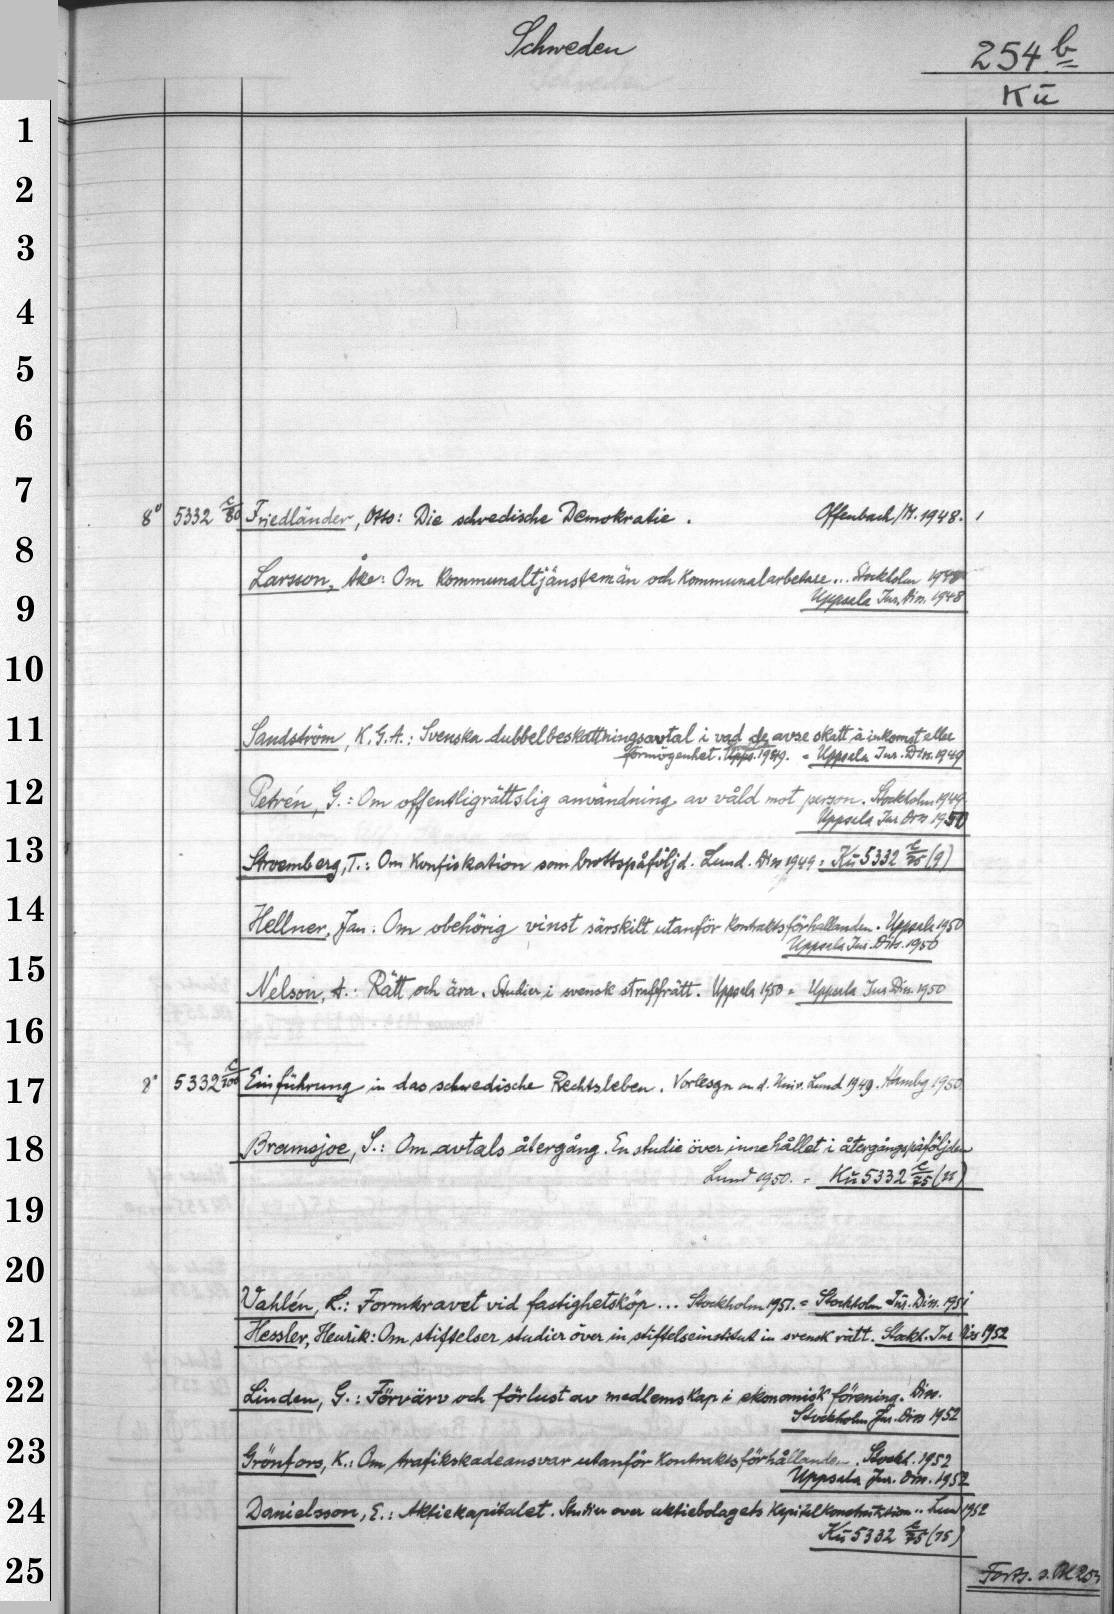 Schweden
254 b
Kü
1
2
3
4
5
6
7
8° 5332 c/80 Friedländer, Otto: Die schwedische Demokratie. Offenbach/M. 1948.
8
Larsson, Åke: Om Kommunaltjänstemän och Kommunalarbetare... Stockholm 1948
Uppsala Jur. Diss. 1948
9
10
11
Sandström, K.G.A.: Svenska dubbelbeskattningsavtal i vad de avse skatt å inkomst eller
förmögenhet. Upps. 1949. = Uppsala Jur. Diss. 1949
12
Petrén, G.: Om offentligrättslig användning av våld mot person. Stockholm 1949.
Uppsala Jur. Diss 1950
13
Stroemberg, T.: Om Konfiskation som brottspåföljd. Lund. Diss 1949 = Kü 5332 c/75 (9)
14
Hellner, Jan: Om obehörig vinst särskilt utanför kontraktsförhallanden. Uppsala 1950
Uppsala Jur. Diss. 1950
15
Nelson, A.: Rätt och ära. Studier i svensk straffrätt. Uppsala 1950 = Uppsala Jur. Diss. 1950
16
17
8° 5332 c/100 Einführung in das schwedische Rechtsleben. Vorlesgn an d. Univ. Lund 1949. Hambg 1950
18
Bramsjoe, S.: Om avtals återgång. En studie över innehållet i återgångspåföljden
Lund 1950. = Kü 5332 c/75
19
20
Vahlén, L.: Formkravet vid fastighetsköp... Stockholm 1951. = Stockholm Jur. Diss. 1951
21
Hessler, Henrik: Om stiftelser studier över in stiftelseinstitut in svensk rätt. Stockh. Jur Diss 1952
22
Linden, G.: Förvärv och förlust av medlemskap i ekonomisk förening. Diss.
Stockholm Jur. Diss 1952
23
Grönfors, K.: Om trafikskadeansvar utanför Kontraktsförhållanden. Stockh. 1952
Uppsala Jur. Diss. 1952
24
Danielsson, E.: Aktiekapitalet. Studier over aktiebolagets Kapitalkonstruktion.. Lund 1952
Kü 5332 c/75 (15)
25
Forts. s. Bl 253